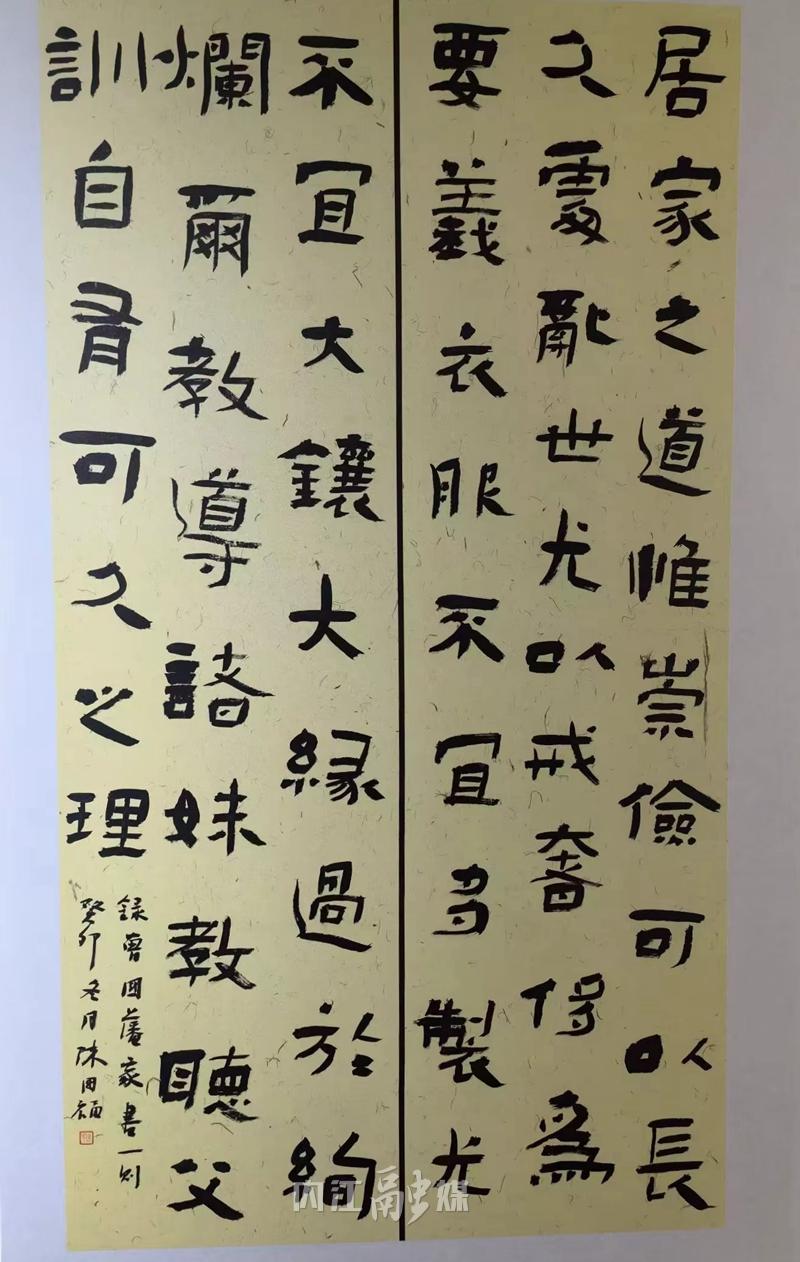 居家之道惟崇儉可以長
久處亂世尤以戒奢侈為
要義衣服不宜多製尤
不宜大鑲大緣過於絢
爛爾教導諸妹敬聽父
訓自有可久之理
錄曾國藩家書一則
癸卯冬月陳
内江融媒